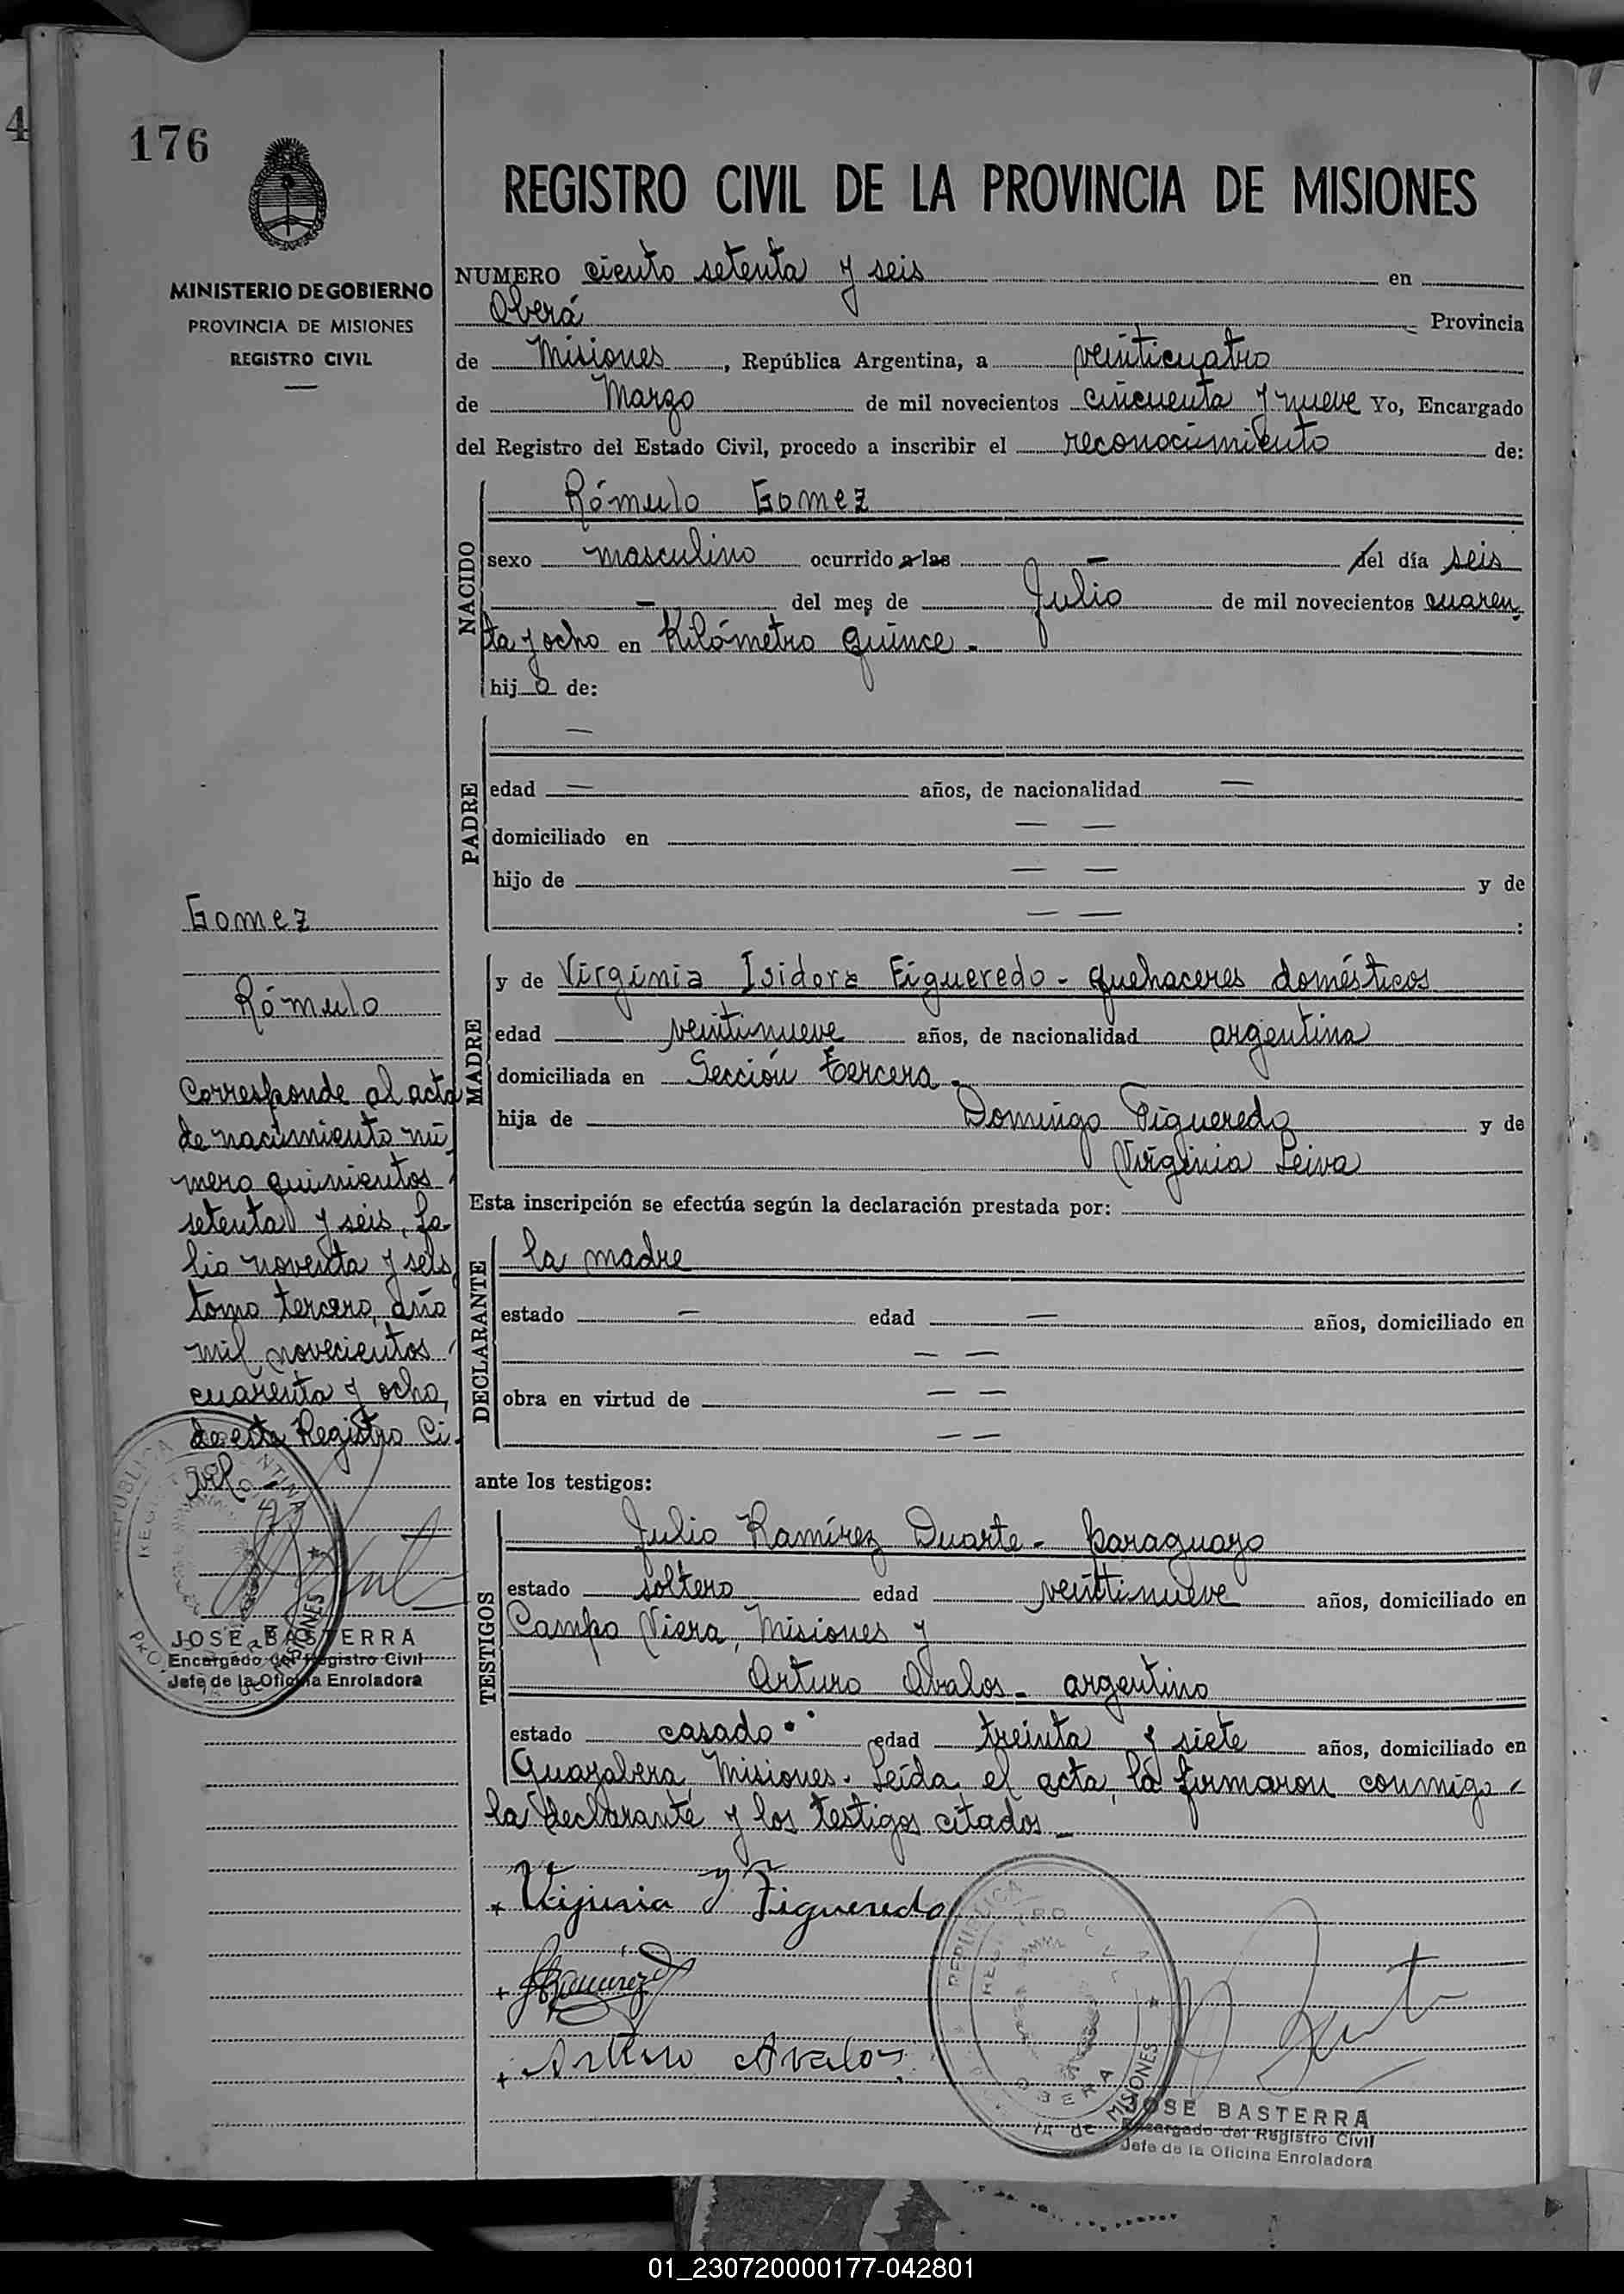 4
176
MINISTERIO DE GOBIERNO
PROVINCIA DE MISIONES
REGISTRO CIVIL
REGISTRO CIVIL DE LA PROVINCIA DE MISIONES
NUMERO ciento setenta y seis en
Oberá Provincia
de Misiones, República Argentina, a veinticuatro
de Marzo de mil novecientos cincuenta y nueve Yo, Encargado
del Registro del Estado Civil, procedo a inscribir el reconocimiento de:
NACIDO
Rómulo Gomez
sexo masculino ocurrido a las — del día seis
— del mes de Julio de mil novecientos cuaren
ta y ocho en Kilómetro quince.-
hijo de:
PADRE
—
edad — años, de nacionalidad —
domiciliado en — —
hijo de — — y de
— — :
MADRE
y de Virginia Isidora Figueredo - quehaceres domésticos
edad veintinueve años, de nacionalidad argentina
domiciliada en Sección tercera.-
hija de Domingo Figueredo y de
Virginia Leiva
Esta inscripción se efectúa según la declaración prestada por:
DECLARANTE
la madre
estado — edad — años, domiciliado en
— —
obra en virtud de — —
— —
ante los testigos:
TESTIGOS
Julio Ramírez Duarte - paraguayo
estado soltero edad veintinueve años, domiciliado en
Campo Viera, Misiones y
Arturo Avalos - argentino
estado casado edad treinta y siete años, domiciliado en
Guayabera, Misiones. Leída el acta, la firmaron conmigo
la declarante y los testigos citados
Gomez
Rómulo
Corresponde al acta
de nacimiento nú
mero quinientos
setenta y seis, fo-
lio noventa y seis
tomo tercero, año
mil novecientos
cuarenta y ocho,
de este Registro Ci-
vil.-
JOSE BASTERRA
Encargado del Registro Civil
Jefe de la Oficina Enroladora
+ Vijinia Y Figueredo
+ Arturo Avalos
REPUBLICA
OBERA
MISIONES
JOSE BASTERRA
Encargado del Registro Civil
Jefe de la Oficina Enroladora
01_230720000177-042801